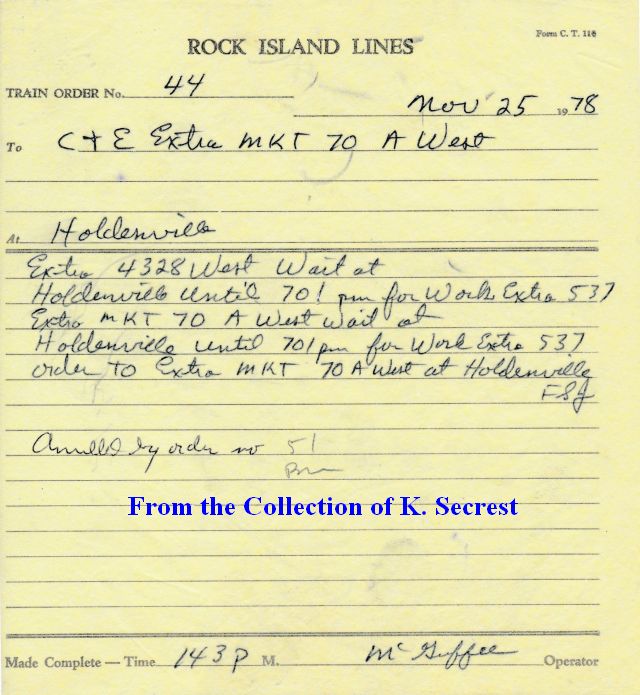 Form C. T. 118
ROCK ISLAND LINES
TRAIN ORDER No. 44
Nov 25 1978
To C + E Extra MKT 70 A West
At Holdenville
Extra 4328 West Wait at
Holdenville until 701 pm for Work Extra 537
Extra MKT 70 A West wait at
Holdenville until 701 pm for Work Extra 537
order to Extra MKT 70 A West at Holdenville
FSJ
Anulled by order no 51
From the Collection of K. Secrest
Made Complete — Time 143 P M. McGuffee Operator